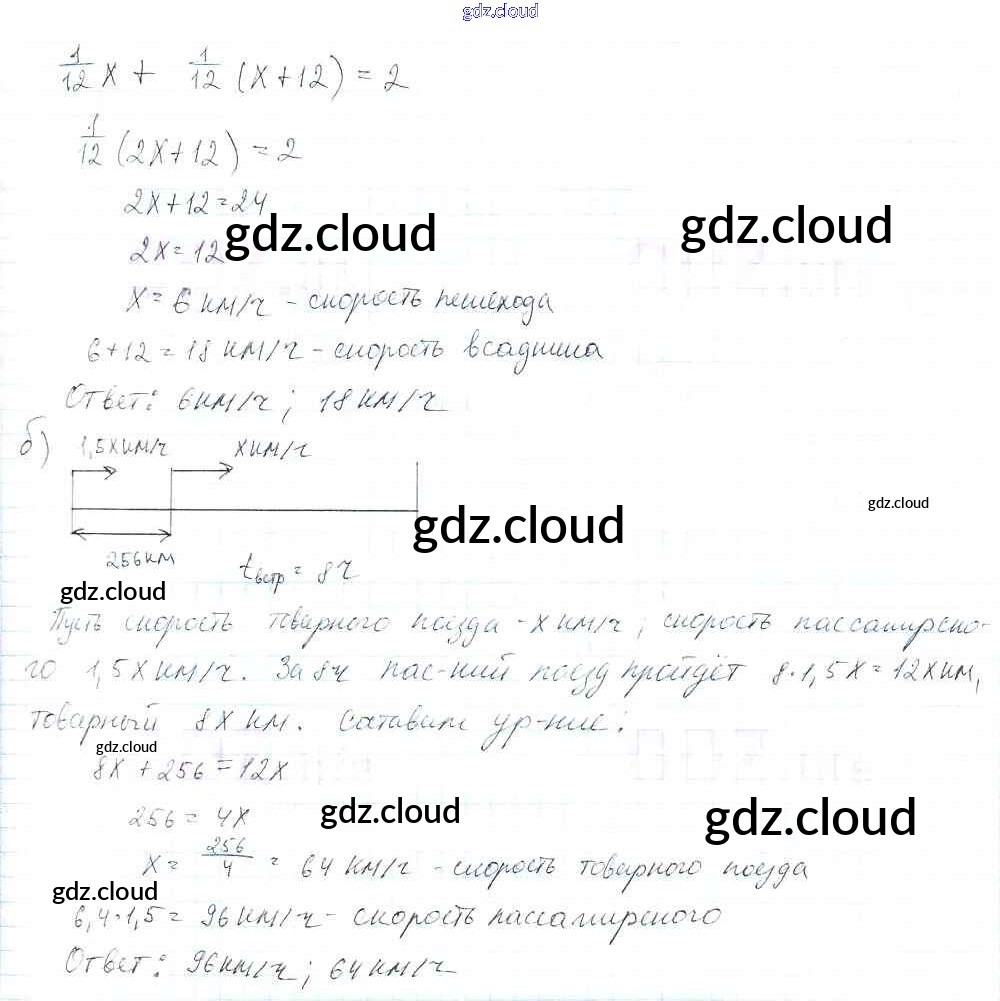 gdz.cloud
1/12 x + 1/12 (x+12) = 2
1/12 (2x+12) = 2
2x+12=24
gdz.cloud
gdz.cloud
2x=12
x= 6 км/ч - скорость пешехода
6+12=18 км/ч - скорость всадника
Ответ: 6км/ч; 18 км/ч
б) 1,5х км/ч х км/ч
gdz.cloud
gdz.cloud
256км
tвстр = 8ч
gdz.cloud
Пусть скорость товарного поезда - х км/ч, скорость пассажирско-
го 1,5х км/ч. За 8ч пас-кий поезд пройдёт 8·1,5х=12х км,
товарный 8х км. Составим ур-ние:
gdz.cloud
8х+256=12х
256=4х
gdz.cloud
gdz.cloud
х= 256/4 = 64 км/ч - скорость товарного поезда
gdz.cloud
6,4·1,5= 96км/ч - скорость пассажирского
Ответ: 96км/ч; 64км/ч